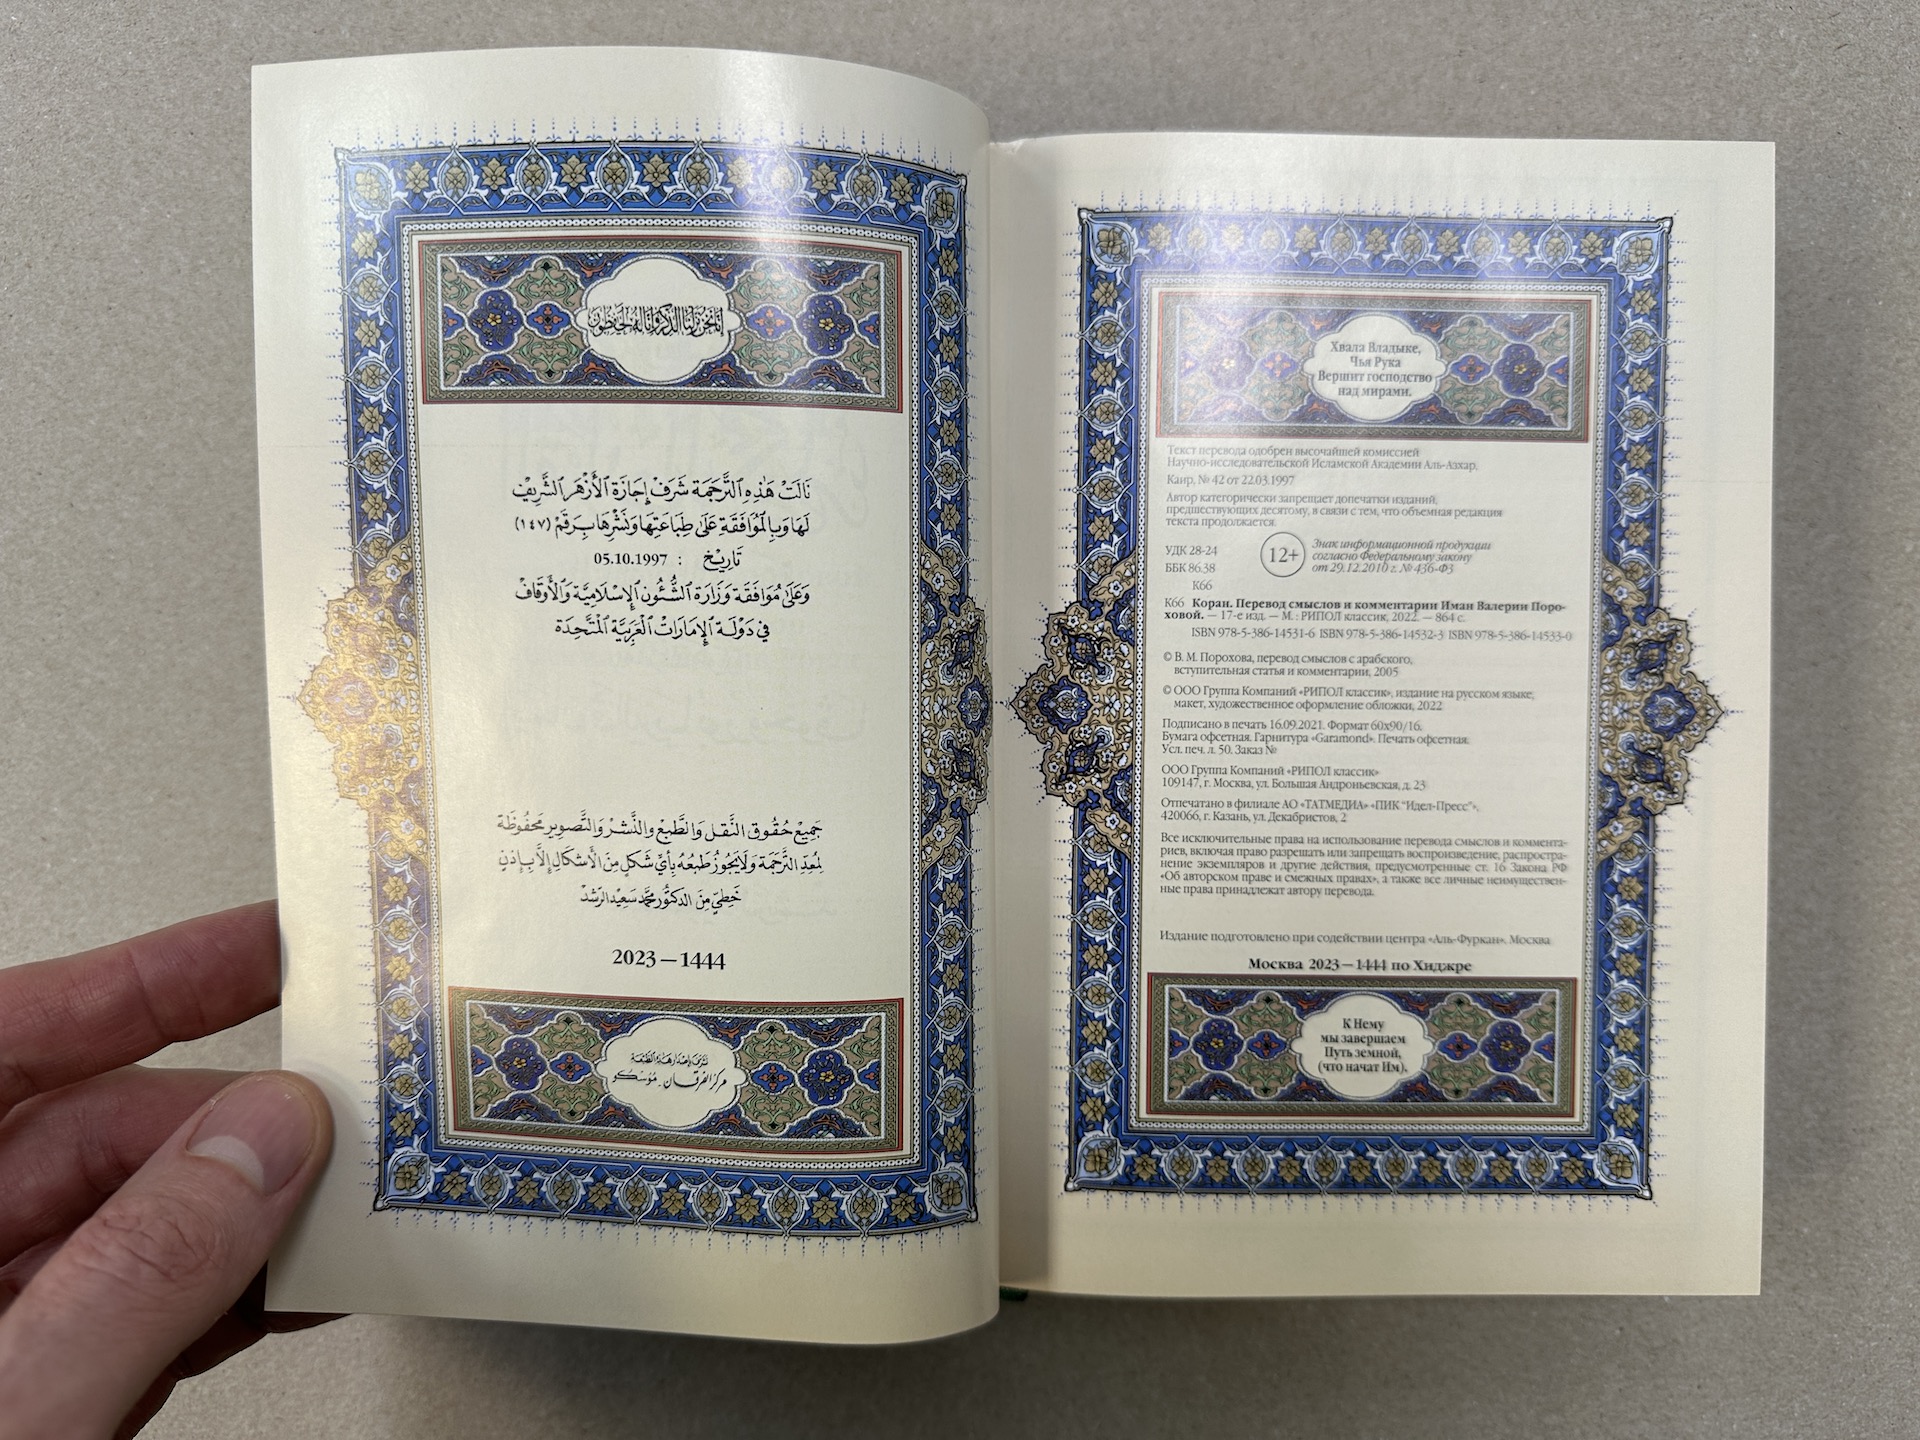 إنا نحن نزلنا الذكر وإنا له لحافظون
نَالَتْ هَٰذِهِ ٱلتَّرجَمَة شَرَفْ إِجَازَة ٱلأَزْهَر ٱلشَّرِيفْ
لَهَا وَبِالمُوَافَقَةِ عَلَىٰ طِبَاعَتِهَا وَنَشْرِهَا بِرَقَمْ (١٤٧)
تَارِيْخ : 05.10.1997
وَعَلَىٰ مُوَافَقَة وَزَارَة ٱلشُّئُون ٱلإِسْلَامِيَّة وَٱلأَوقَافْ
فِي دَوْلَة ٱلإِمَارَاتْ ٱلعَرَبِيَّة ٱلمُتَّحِدَة
جَمِيعْ حُقُوق النَّقل وَالطَّبع والنَّشر وَالتَّصوير مَحْفُوظَة
لِمُعِدّ التَّرجَمَة وَلَا يَجُوز طَبعُهُ بِأَيِّ شَكلٍ مِنَ الأَشكَالِ إِلَّا بِإِذنٍ
خَطِيّ مِنَ الدكتُور مُحَمَّد سَعِيد الرّشد
2023 — 1444
مركز الفرقان . موسكو
Хвала Владыке,
Чья Рука
Вершит господство
над мирами.
Текст перевода одобрен высочайшей комиссией
Научно-исследовательской Исламской Академии Аль-Азхар.
Каир, № 42 от 22.03.1997
Автор категорически запрещает допечатки изданий,
предшествующих десятому, в связи с тем, что объемная редакция
текста продолжается.
УДК 28-24
ББК 86.38
К66
12+
Знак информационной продукции
согласно Федеральному закону
от 29.12.2010 г. № 436-ФЗ
К66 Коран. Перевод смыслов и комментарии Иман Валерии Поро-
ховой. — 17-е изд. — М. : РИПОЛ классик, 2022. — 864 с.
ISBN 978-5-386-14531-6 ISBN 978-5-386-14532-3 ISBN 978-5-386-14533-0
© В. М. Порохова, перевод смыслов с арабского,
вступительная статья и комментарии, 2005
© ООО Группа Компаний «РИПОЛ классик», издание на русском языке,
макет, художественное оформление обложки, 2022
Подписано в печать 16.09.2021. Формат 60х90/16.
Бумага офсетная. Гарнитура «Garamond». Печать офсетная.
Усл. печ. л. 50. Заказ №
ООО Группа Компаний «РИПОЛ классик»
109147, г. Москва, ул. Большая Андроньевская, д. 23
Отпечатано в филиале АО «ТАТМЕДИА» «ПИК "Идел-Пресс"»,
420066, г. Казань, ул. Декабристов, 2
Все исключительные права на использование перевода смыслов и коммента-
риев, включая право разрешать или запрещать воспроизведение, распростра-
нение экземпляров и другие действия, предусмотренные ст. 16 Закона РФ
«Об авторском праве и смежных правах», а также все личные неимуществен-
ные права принадлежат автору перевода.
Издание подготовлено при содействии центра «Аль-Фуркан». Москва
Москва 2023 — 1444 по Хиджре
К Нему
мы завершаем
Путь земной,
(что начат Им).